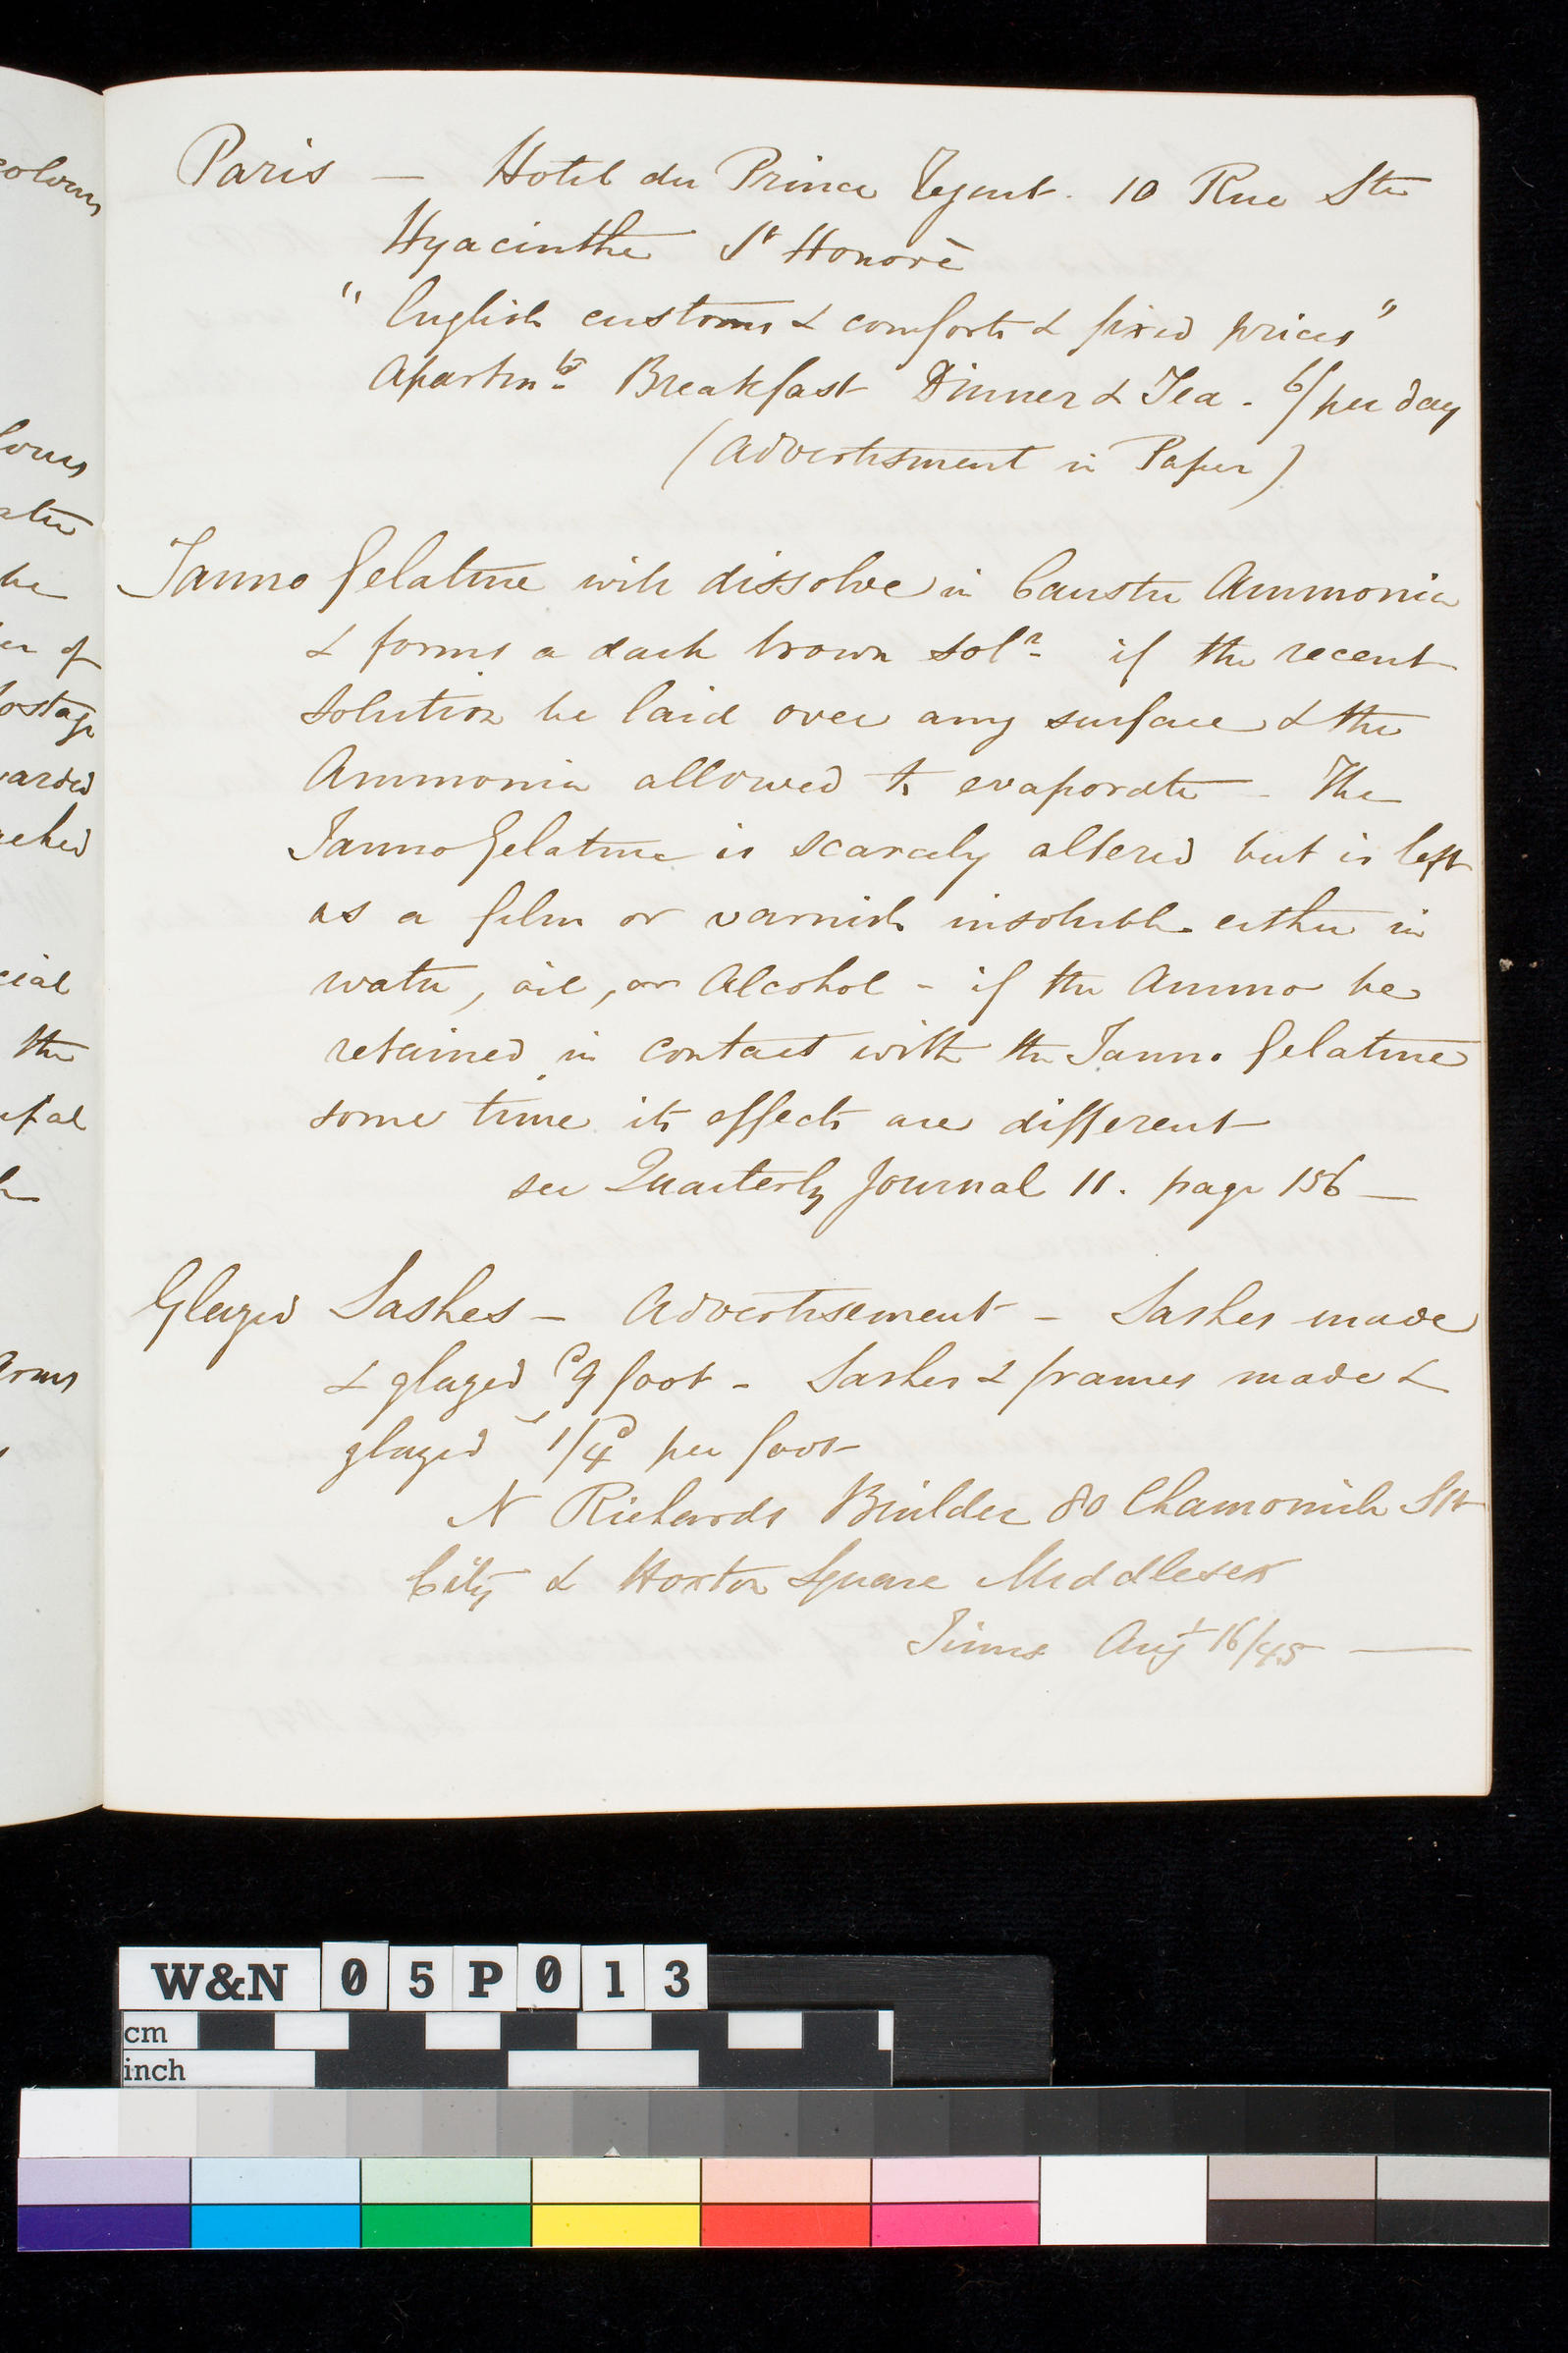 Paris — Hotel du Prince Regent. 10 Rue Ste
Hyacinthe St Honorè
" English customs & comforts & fixed prices "
Apartmts Breakfast Dinner & Tea. 6/ per day
(Advertisment in Paper)
Tanno Gelatine will dissolve in Caustic Ammonia
& forms a dark brown soln if the recent
solution be laid over any surface & the
Ammonia allowed to evaporate – The
Tanno Gelatine is scarcely altered but is left
as a film or varnish insoluble either in
water, oil, or Alcohol – if the Ammo be
retained in contact with the Tanno Gelatine
some time its effects are different
see Quarterly Journal 11. page 156 —
Glazed Sashes – Advertisement – Sashes made
& glazed 9d foot – Sashes & frames made &
glazed 1/4d per foot
N Richards Builder 80 Chamomile Stt
City & Hoxton Square Middlesex
Times Augt 16/45 —
colours
the
er of
ostage
arded
cial
the
Arms
W&N 05P013
cm
inch